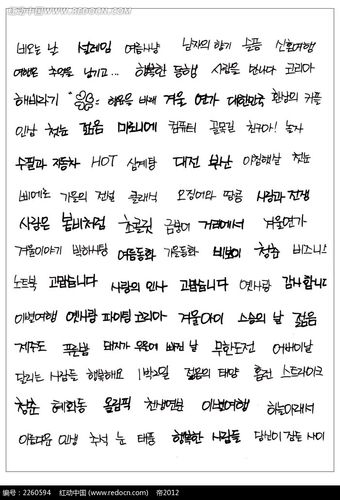 红动中国 WWW.REDOCN.COM
비오는 날 설레임 여름사냥 남자의 향기 슬픔 신혼여행
여행은 추억을 남기고... 행복한 동행 사람을 만나다 코리아
해바라기 행운을 빌때 겨울 연가 대한민국 환상의 커플
인상 첫눈 젊음 마로니에 컴퓨터 골목길 친구야! 놀자
수필과 자동차 HOT 삼계탕 대전 부난 이럴땐날 첫눈
삐에로 가을의 전설 클래식 오징어와 땅콩 사랑과 전쟁
사랑은 봄비처럼 초콜릿 금붕어 거리에서 겨울연가
겨울이야기 박하사탕 여름동화 가을동화 비보이 청춘 비즈니스
노트북 고맙습니다 사랑의 인사 고맙습니다 옛사랑 감사합니다
이번여행 옛사랑 파이팅 코리아 겨울아이 스승의 날 젊음
제주도 푸른밤 돼지가 우물에 빠진 날 무한도전 어버이날
달리는 사람들 행복해요 1박2일 젊음의 태양 훔친 스트라이크
청춘 혜화동 올림픽 천생연분 이번여행 하늘아래서
아름다운 인생 추석 눈 태풍 행복한 사람들 당신이 잠든 사이
编号：2260594 红动中国 (www.redocn.com) 帝2012